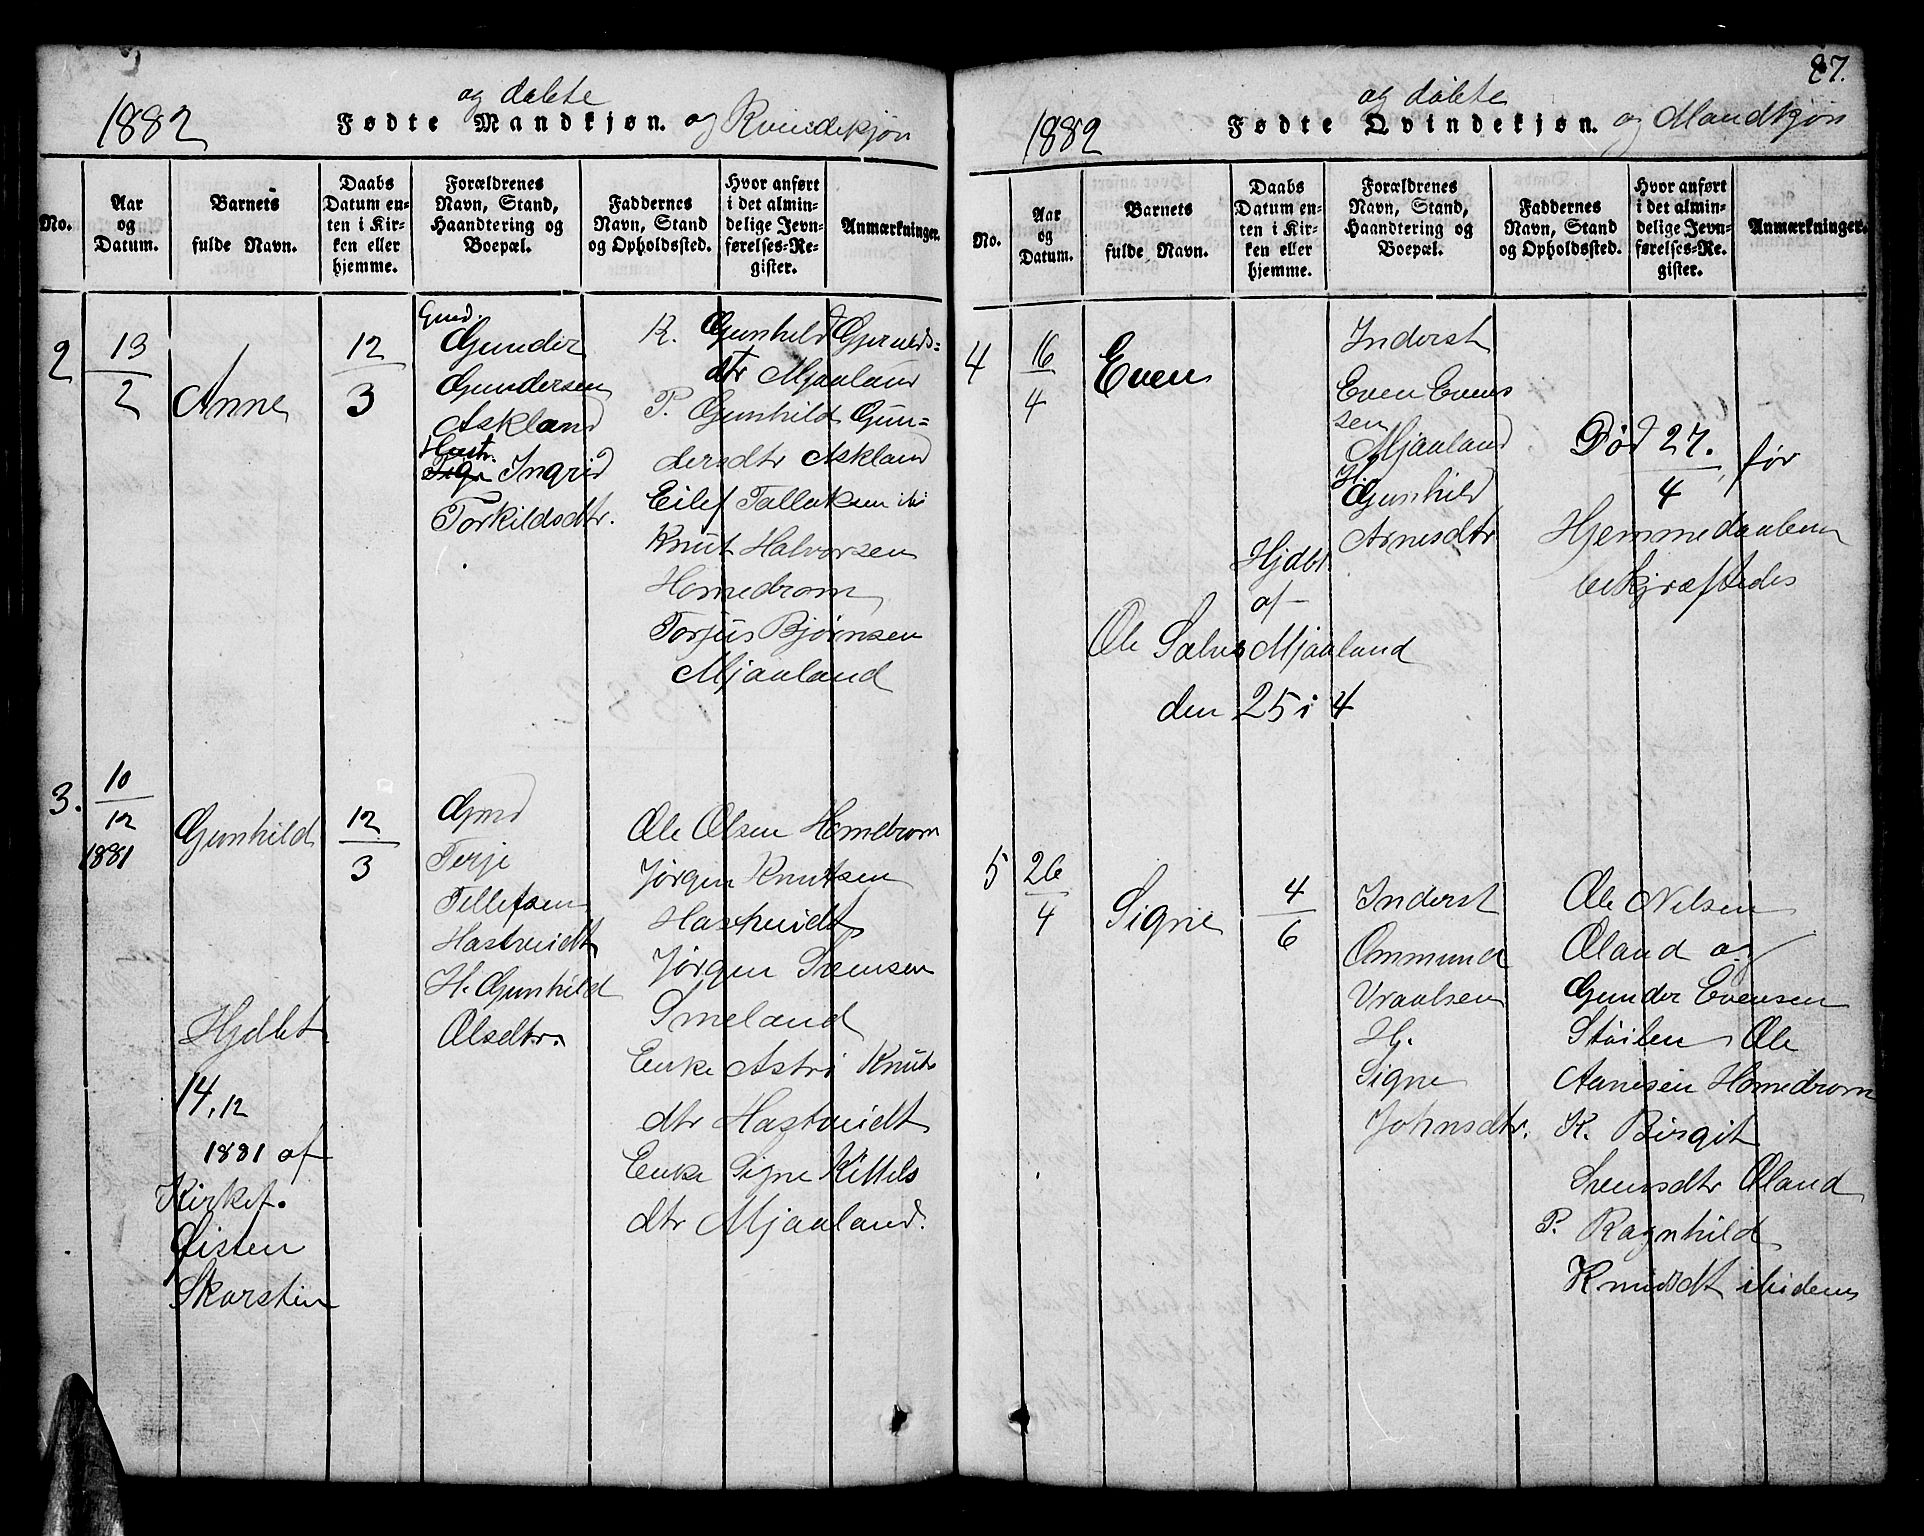 1882
og døbte
Fødte Mandkjøn. og Kvindekjøn
No.
Aar og Datum.
Barnets fulde Navn.
Daabs Datum enten i Kirken eller hjemme.
Forældrenes Navn, Stand, Haandtering og Boepæl.
Faddernes Navn, Stand og Opholdssted.
Hvor anført i det almindelige Jevnførelses-Register.
Anmærkninger.
2
13/2
Anne
12/3
Gmd.
Gunder
Gundersen
Askland
Hustr.
Ingrid
Torkildsdtr.
K. Gunhild Gjeruldsdtr
Mjaaland
P. Gunhild Gundersdtr
Askland
Eilef Tallaksen ibi
Knut Halvorsen
Homedrom
Torjus Bjørnsen
Mjaaland
3.
10/12
1881
Gunhild
12/3
Hjdbt
14.12
1881 af
Kirkes.
Gisten
Skarstein
Gmd
Terje
Tellefsen
Hastveidt
H. Gunhild
Olsdtr.
Ole Olsen Homedrom
Jørgen Knutsen
Hastveidt
Jørgen Svensen
Smeland
Enke Astri Knuts
dtr Hastveidt
Enke Signe Kittels
dtr Mjaaland.
87.
1882
og døbte
Fødte Qvindekjøn. og Mandkjøn
No.
Aar og Datum.
Barnets fulde Navn.
Daabs Datum enten i Kirken eller hjemme.
Forældrenes Navn, Stand, Haandtering og Boepæl.
Faddernes Navn, Stand og Opholdssted.
Hvor anført i det almindelige Jevnførelses-Register.
Anmærkninger.
4
16/4
Even
Hjdbt
af
Ole Salves Mjaaland
den 25 i 4
Inderst
Even Evens
sen
Mjaaland
H.
Gunhild
Arnesdtr
Død 27./4, før
Hjemmedaaben
bekjræftedes
5
26/4
Signe
4/6
Inderst
Ommund
Vraalsen
H.
Signe
Johnsdtr.
Ole Nilsen
Øland og
Gunder Evensen
Støilen Ole
Aanesen Homedrom
K. Birgit
Svensdtr Øland
P. Ragnhild
Knudsdt ibidem